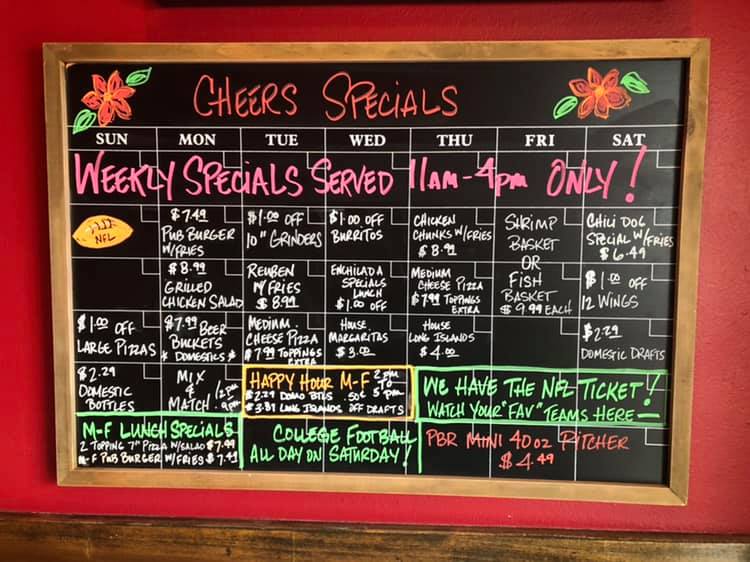 CHEERS SPECIALS
SUN MON TUE WED THU FRI SAT
WEEKLY SPECIALS SERVED 11AM-4PM ONLY!
NFL
$7.49
PUB BURGER
W/FRIES
$1.00 OFF
10" GRINDERS
$1.00 OFF
BURRITOS
CHICKEN
CHUNKS W/FRIES
$8.99
SHRIMP
BASKET
OR
FISH
BASKET
$9.99 EACH
CHILI DOG
SPECIAL W/FRIES
$6.49
$8.99
GRILLED
CHICKEN SALAD
REUBEN
W/FRIES
$8.99
ENCHILADA
SPECIALS
LUNCH
$1.00 OFF
MEDIUM
CHEESE PIZZA
$7.99 TOPPINGS
EXTRA
$1.00 OFF
12 WINGS
$1.00 OFF
LARGE PIZZAS
$7.99 BEER
BUCKETS
*DOMESTICS*
MEDIUM
CHEESE PIZZA
$7.99 TOPPINGS
EXTRA
HOUSE
MARGARITAS
$3.00
HOUSE
LONG ISLANDS
$4.00
$2.29
DOMESTIC DRAFTS
$2.29
DOMESTIC
BOTTLES
MIX
&
MATCH
12PM
9PM
HAPPY HOUR M-F 2PM
TO
5PM
$2.29 DOMO BTLS .50¢
$3.81 LONG ISLANDS OFF DRAFTS
WE HAVE THE NFL TICKET!
WATCH YOUR "FAV" TEAMS HERE
M-F LUNCH SPECIALS
2 TOPPING 7" PIZZA W/SALAD $7.99
M-F PUB BURGER W/FRIES $7.49
COLLEGE FOOTBALL
ALL DAY ON SATURDAY!
PBR MINI 40OZ PITCHER
$4.49